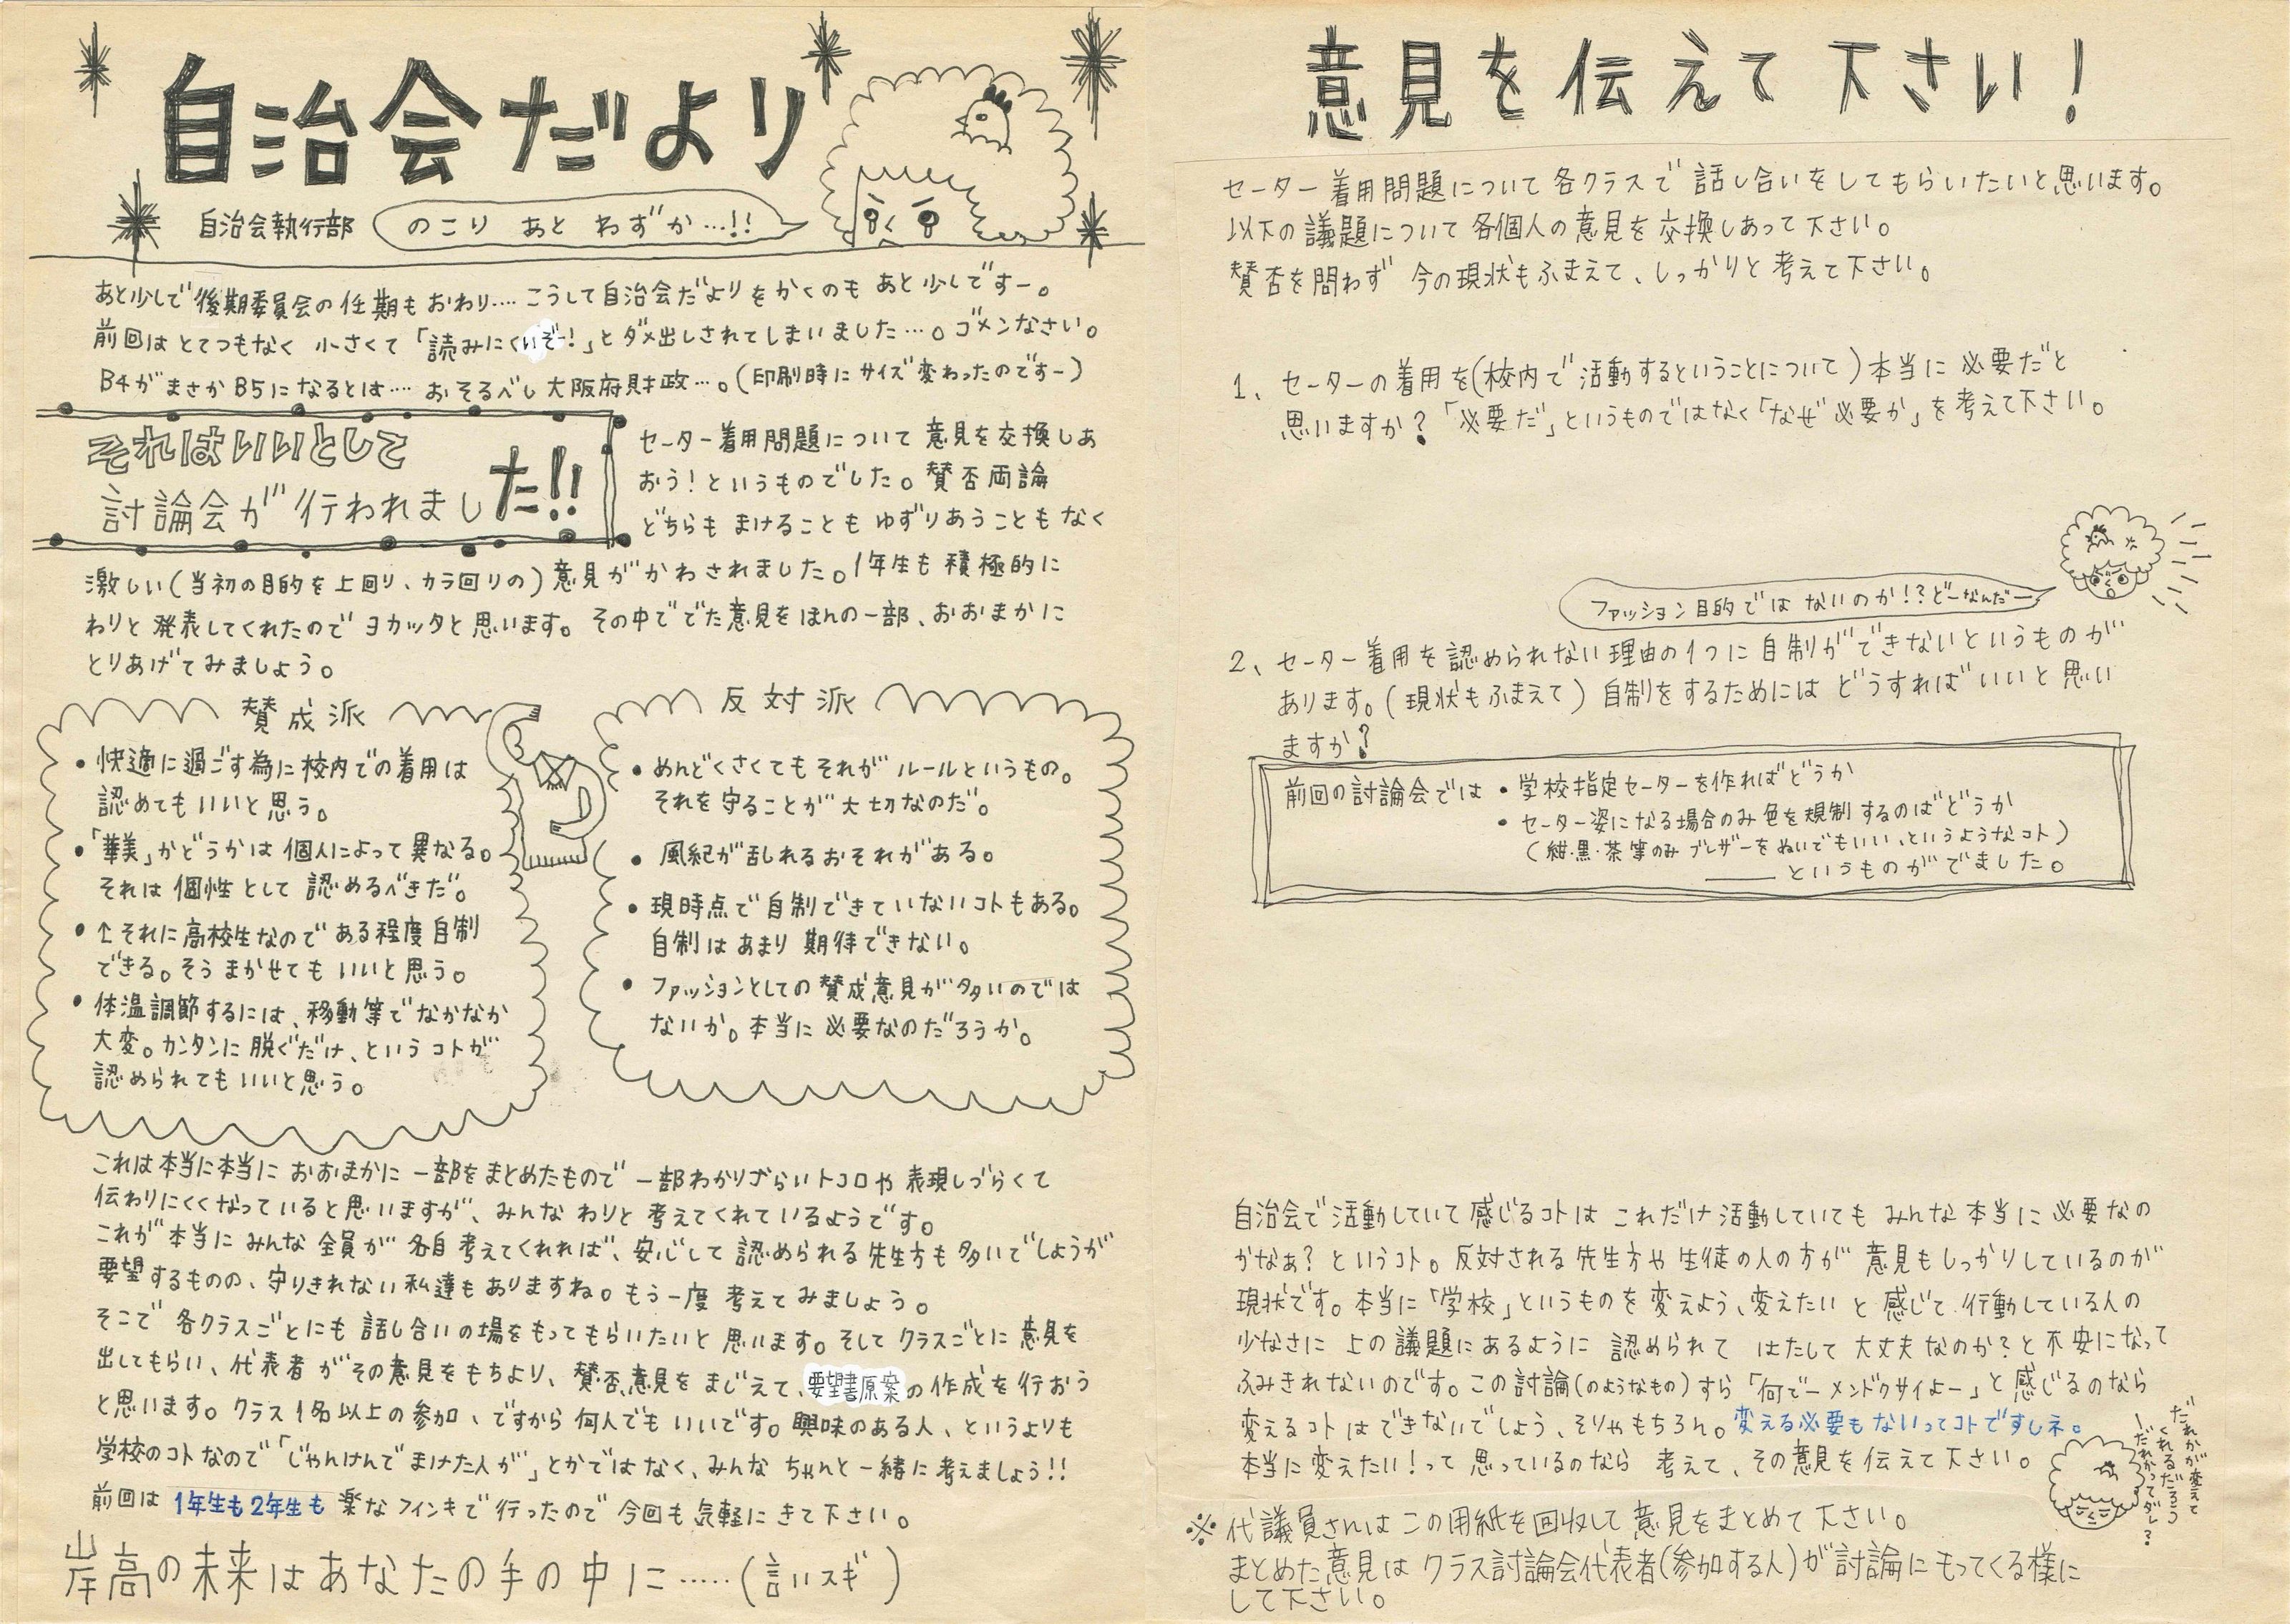 自治会だより
自治会執行部
のこり あと わずか…!!
あと少しで後期委員会の任期もおわり…. こうして自治会だよりをかくのも あと少しですー。
前回はとてつもなく 小さくて「読みにくいぞー!」とダメ出しされてしまいました…。ゴメンなさい。
B4がまさかB5になるとは…. おそるべし大阪府財政…。(印刷時にサイズ変わったのですー)
それはいいとして
討論会が行われました!!
セーター着用問題について意見を交換しあ
おう!というものでした。賛否両論
どちらも まけることも ゆずりあうこともなく
激しい(当初の目的を上回り、カラ回りの)意見がかわされました。1年生も積極的に
わりと発表してくれたのでヨカッタと思います。その中ででた意見をほんの一部、おおまかに
とりあげてみましょう。
賛成派
・快適に過ごす為に校内での着用は
認めてもいいと思う。
・「華美」かどうかは個人によって異なる。
それは個性として認めるべきだ。
・↑それに高校生なのである程度自制
できる。そうまかせてもいいと思う。
・体温調節するには、移動等でなかなか
大変。カンタンに脱ぐだけ、というコトが
認められてもいいと思う。
反対派
・めんどくさくてもそれがルールというもの。
それを守ることが大切なのだ。
・風紀が乱れるおそれがある。
・現時点で自制できていないコトもある。
自制はあまり期待できない。
・ファッションとしての賛成意見が多いのでは
ないか。本当に必要なのだろうか。
これは本当に本当におおまかに一部をまとめたもので一部わかりづらいトコロや表現しづらくて
伝わりにくくなっていると思いますが、みんなわりと考えてくれているようです。
これが本当にみんな全員が各自考えてくれれば、安心して認められる先生方も多いでしょうが
要望するものの、守りきれない私達もありますね。もう一度考えてみましょう。
そこで各クラスごとにも話し合いの場をもってもらいたいと思います。そしてクラスごとに意見を
出してもらい、代表者がその意見をもちより、賛否意見をまじえて、要望書原案の作成を行おう
と思います。クラス1名以上の参加、ですから何人でもいいです。興味のある人、というよりも
学校のコトなので「じゃんけんでまけた人が」とかではなく、みんなちゃんと一緒に考えましょう!!
前回は1年生も2年生も楽なフインキで行ったので今回も気軽にきて下さい。
岸高の未来はあなたの手の中に…..(言いスギ)
意見を伝えて下さい!
セーター着用問題について各クラスで話し合いをしてもらいたいと思います。
以下の議題について各個人の意見を交換しあって下さい。
賛否を問わず 今の現状もふまえて、しっかりと考えて下さい。
1、セーターの着用を(校内で活動するということについて)本当に必要だと
思いますか?「必要だ」というものではなく「なぜ必要か」を考えて下さい。
ファッション目的ではないのか!?どーなんだー
2、セーター着用を認められない理由の1つに自制ができないというものが
あります。(現状もふまえて)自制をするためにはどうすればいいと思い
ますか?
前回の討論会では・学校指定セーターを作ればどうか
・セーター姿になる場合のみ色を規制するのはどうか
(紺・黒・茶等のみブレザーをぬいでもいい、というようなコト)
――というものがでました。
自治会で活動していて感じるコトはこれだけ活動していてもみんな本当に必要なの
かなぁ?というコト。反対される先生方や生徒の人の方が意見もしっかりしているのが
現状です。本当に「学校」というものを変えよう、変えたいと感じて行動している人の
少なさに上の議題にあるように認められてはたして大丈夫なのか?と不安になって
ふみきれないのです。この討論(のようなもの)すら「何でーメンドクサイよー」と感じるのなら
変えるコトはできないでしょう、そりゃもちろん。変える必要もないってコトですしネ。
本当に変えたい!って思っているのなら考えて、その意見を伝えて下さい。
だれかが変えて
くれるだろうう
ーだれかってダレ?
※代議員さんはこの用紙を回収して意見をまとめて下さい。
まとめた意見はクラス討論会代表者(参加する人)が討論にもってくる様に
して下さい。